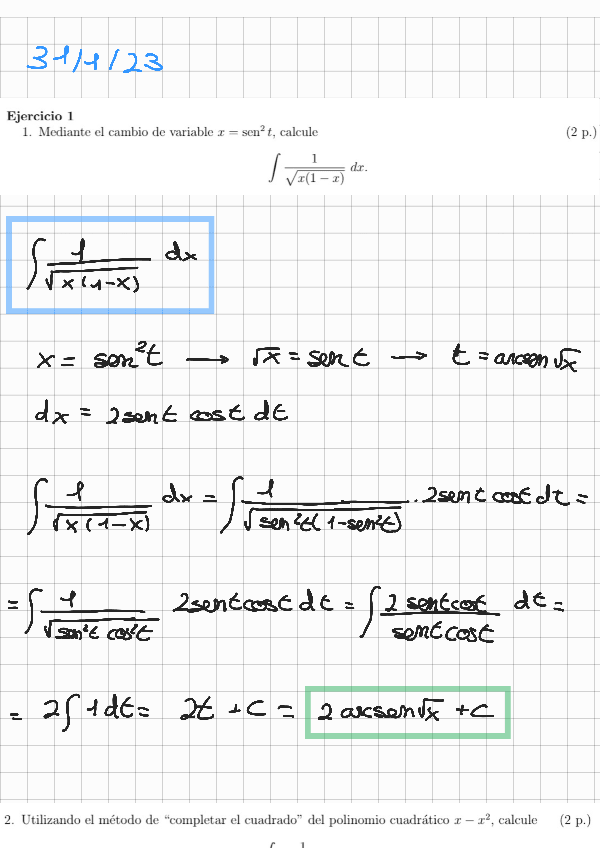 31/1/23
Ejercicio 1
1. Mediante el cambio de variable x = sen² t, calcule (2 p.)
∫ 1/√(x(1 − x)) dx.
∫ 1/√(x(1-x)) dx
x = sen²t → √x = sen t → t = arcsen √x
dx = 2 sen t cos t dt
∫ 1/√(x(1-x)) dx = ∫ 1/√(sen²t(1-sen²t)) · 2 sen t cos t dt =
= ∫ 1/√(sen²t cos²t) 2 sen t cos t dt = ∫ (2 sen t cos t)/(sen t cos t) dt =
= 2∫ 1 dt = 2t + C = 2 arcsen √x + C
2. Utilizando el método de “completar el cuadrado” del polinomio cuadrático x − x², calcule (2 p.)